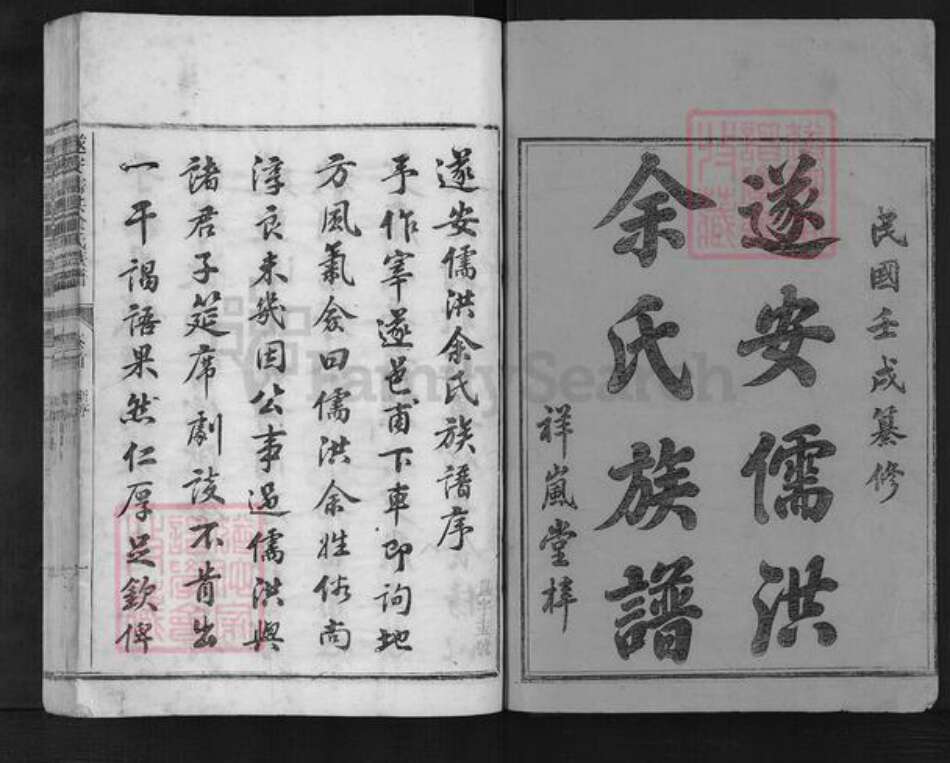 民國壬戌纂修
遂安儒洪
余氏族譜
祥嵐堂梓
遂安儒洪余氏族譜序
予作宰遂邑甫下車即詢地
方風氣僉曰儒洪余姓俗尚
淳良未幾因公事過儒洪與
諸君子筵席劇談不肯出
一干謁語果然仁厚足欽俾
FamilySearch